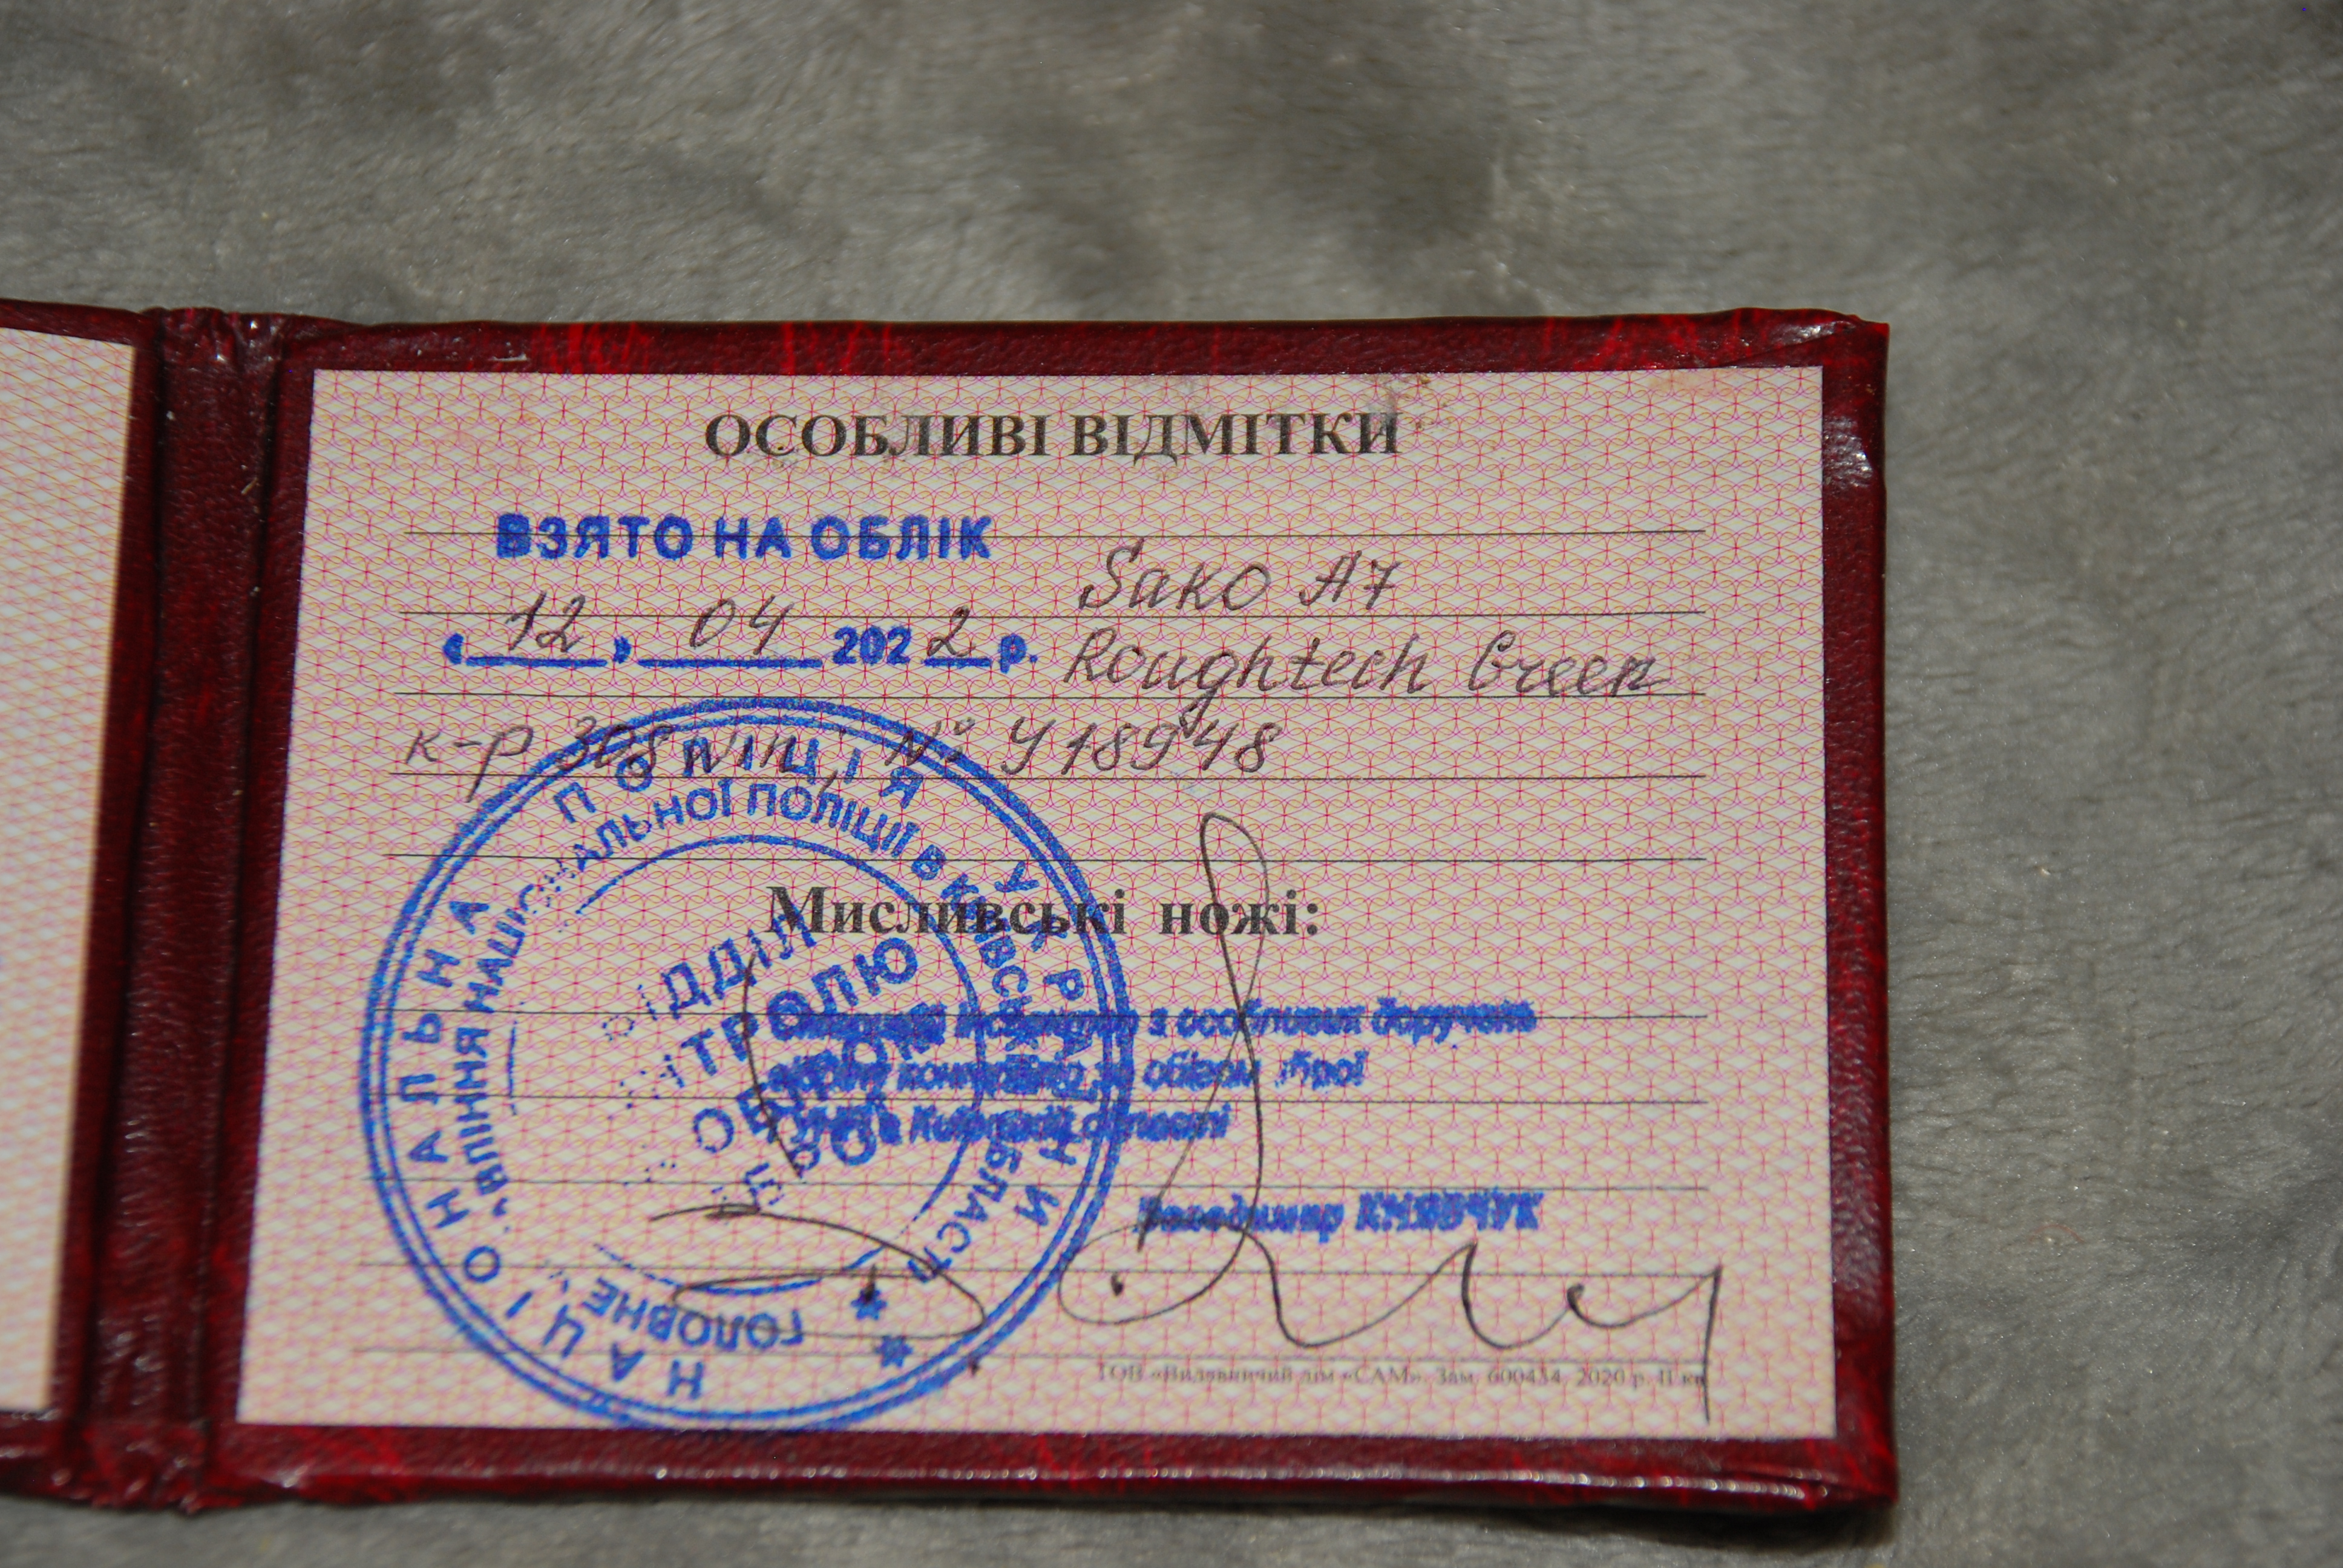 ОСОБЛИВІ ВІДМІТКИ
ВЗЯТО НА ОБЛІК
Sako A7
« 12 » 04 2022 р.
Roughtech Green
к-р 308 win, № У18948
Мисливські ножі:
інспектор з особливих доручень
контролю за обігом зброї
в Київській області
Володимир КНЯЗЧУК
НАЦІОНАЛЬНА ПОЛІЦІЯ УКРАЇНИ
ГОЛОВНЕ УПРАВЛІННЯ НАЦІОНАЛЬНОЇ ПОЛІЦІЇ В КИЇВСЬКІЙ ОБЛАСТІ
ВІДДІЛ
КОНТРОЛЮ
ЗА ОБІГОМ
ЗБРОЇ
ТОВ «Видавничий дім «САМ». Зам. 600434. 2020 р. II кв.